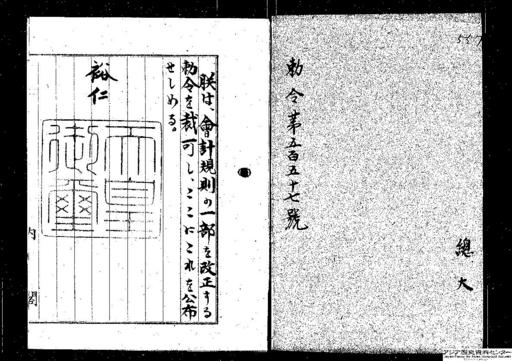 勅令第五百五十七號
總大
朕は、會計規則の一部を改正する
勅令を裁可し、ここにこれを公布
せしめる。
裕仁
天皇
御璽
内
閣
アジア歴史資料センター